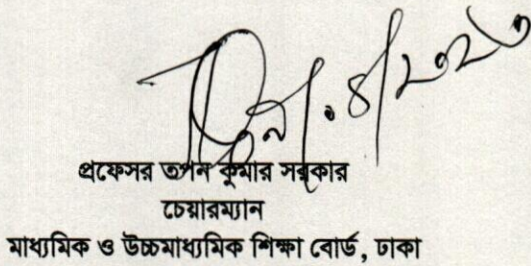 প্রফেসর তপন কুমার সরকার
চেয়ারম্যান
মাধ্যমিক ও উচ্চমাধ্যমিক শিক্ষা বোর্ড, ঢাকা